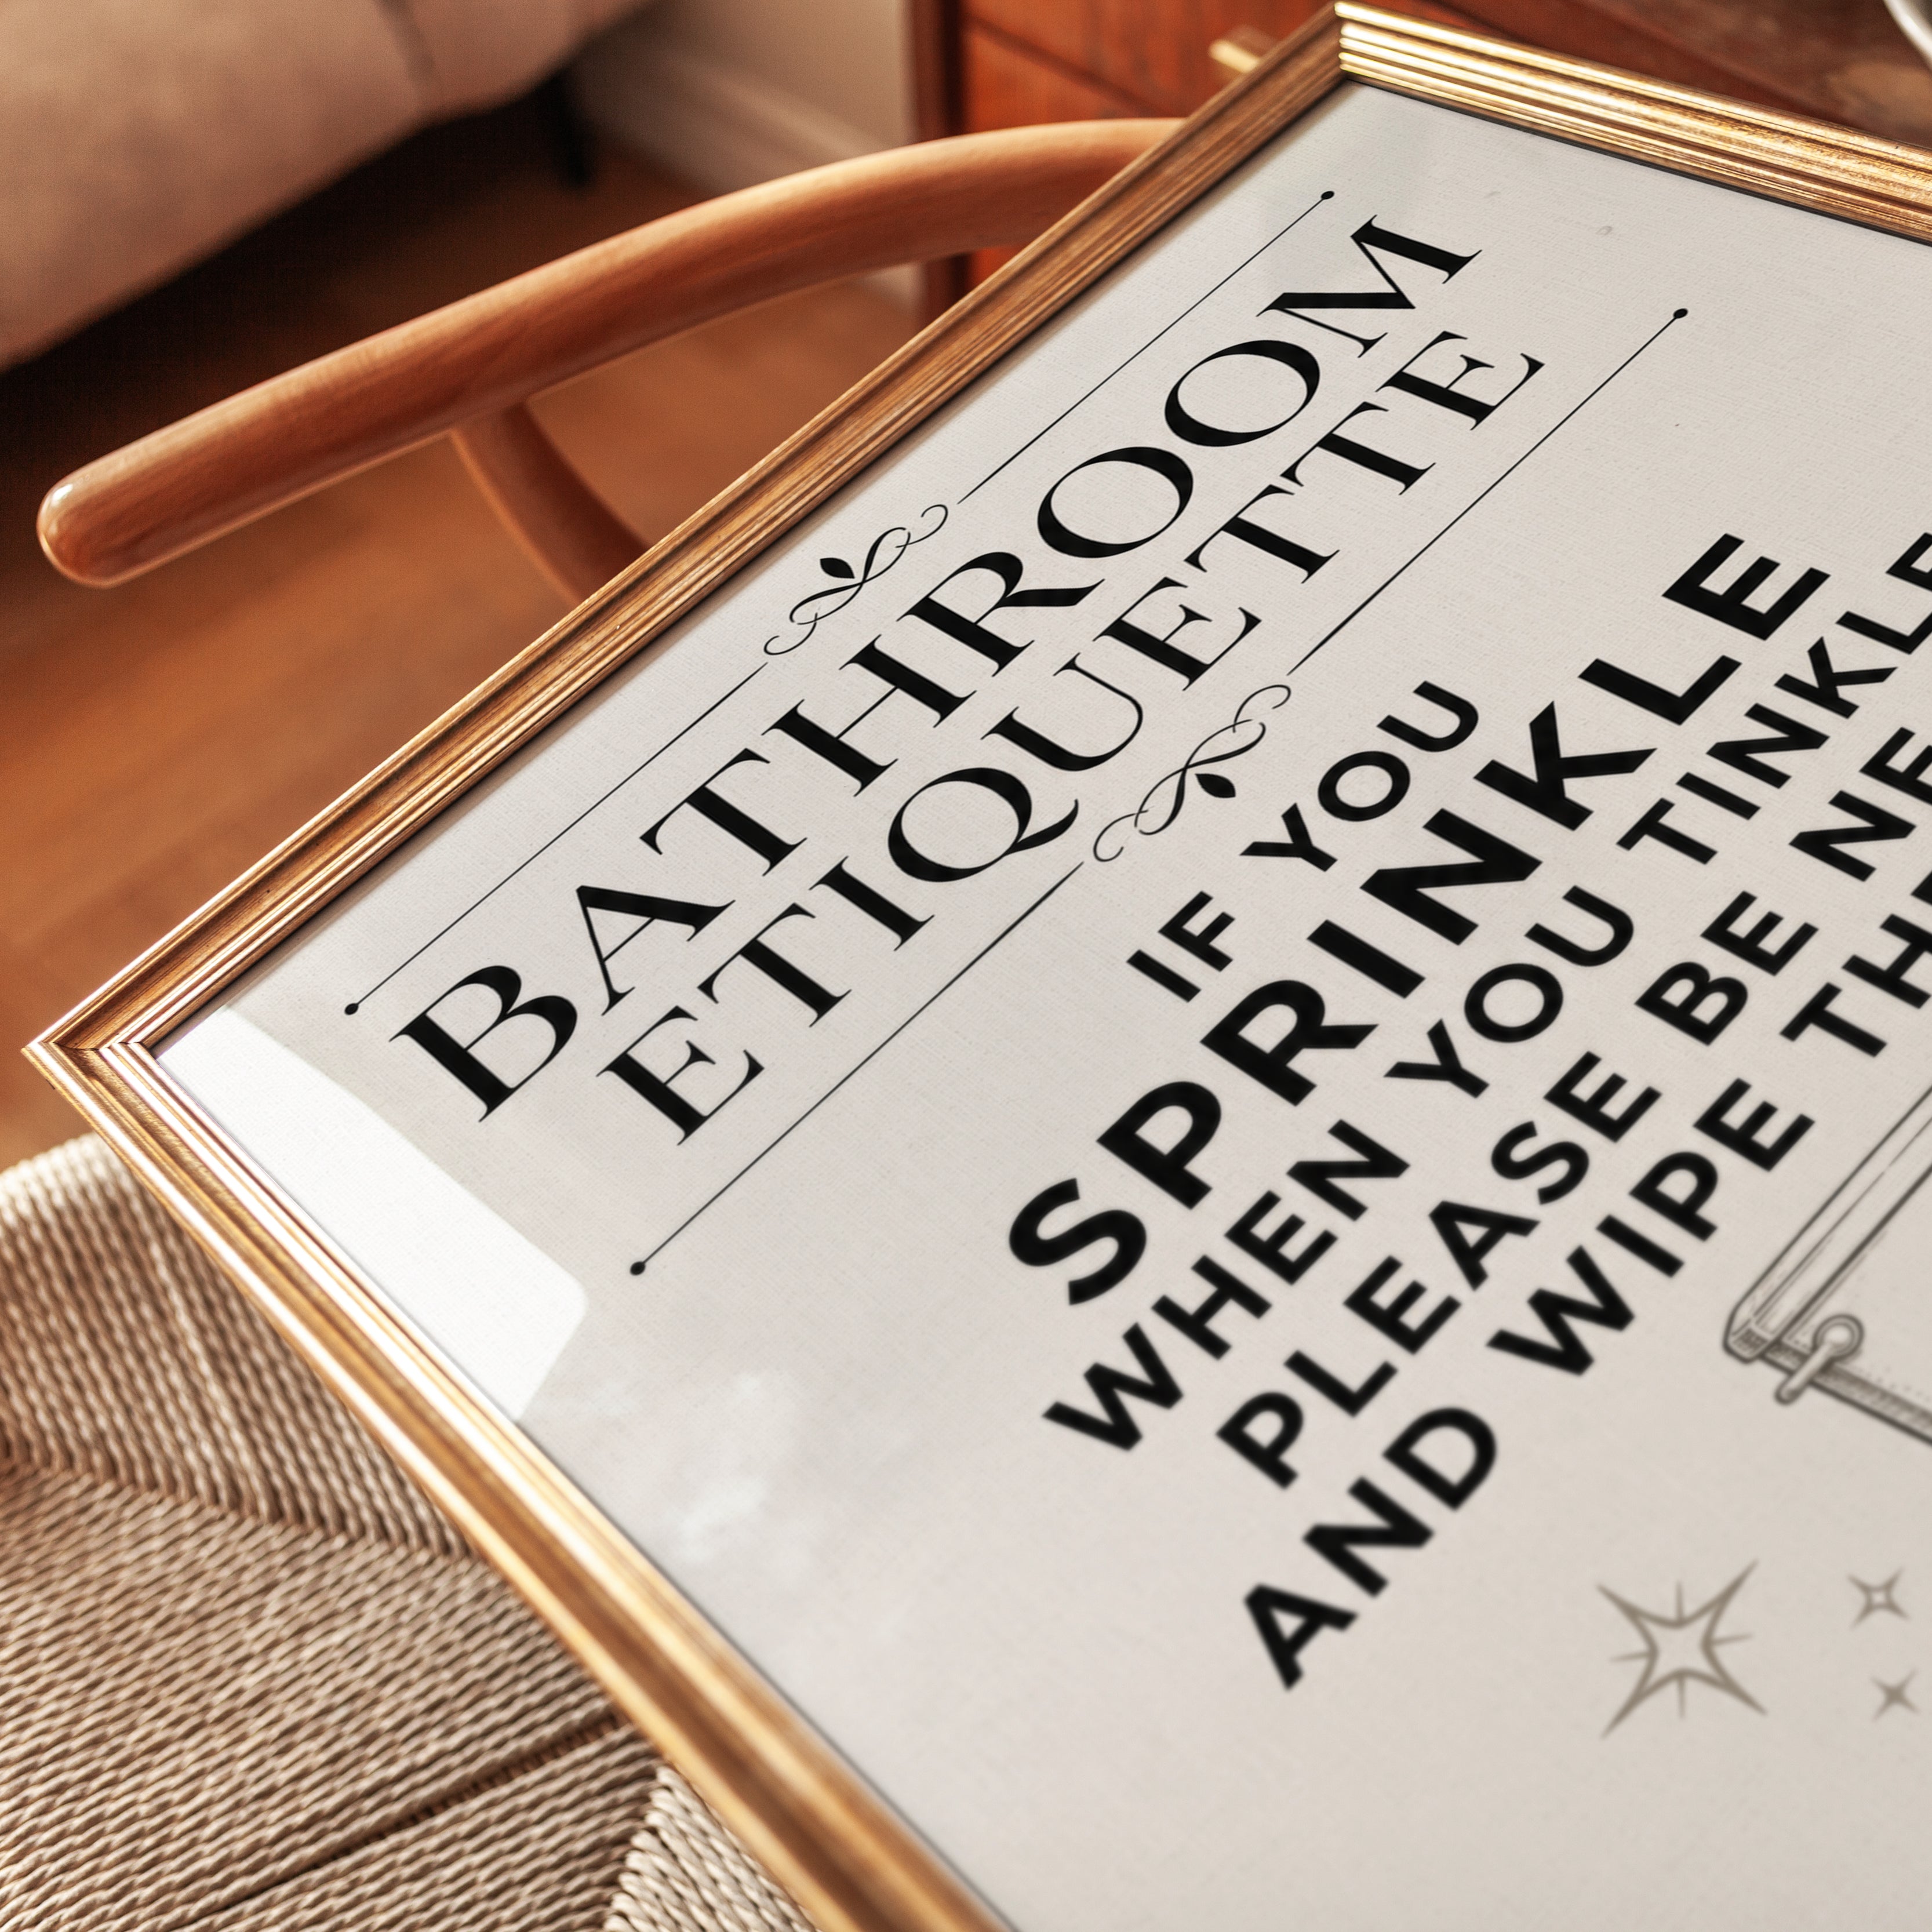 BATHROOM
ETIQUETTE
IF YOU
SPRINKLE
WHEN YOU TINKLE
PLEASE BE NE
AND WIPE TH